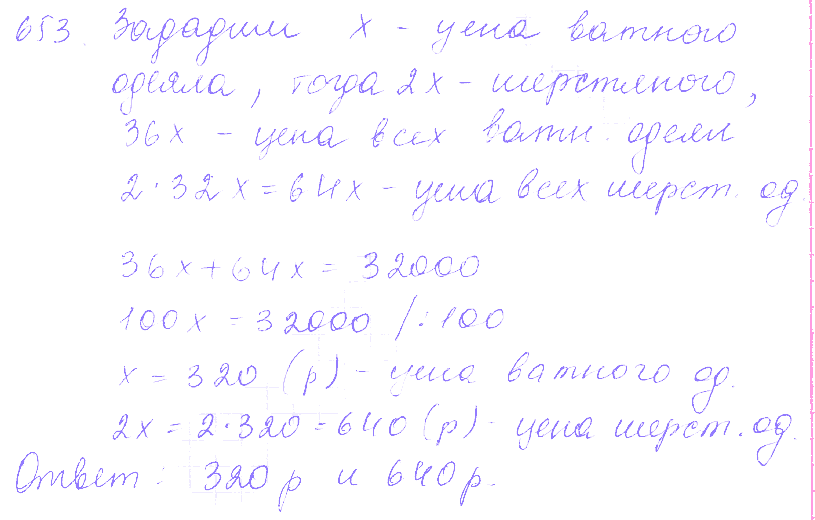 653. Зададим x - цена ватного
одеяла, тогда 2x - шерстяного,
36x - цена всех ватн. одеял
2·32x=64x - цена всех шерст. од.
36x+64x = 32000
100x = 32000 /:100
x = 320 (р) - цена ватного од.
2x = 2·320=640 (р) - цена шерст. од.
Ответ: 320р и 640р.